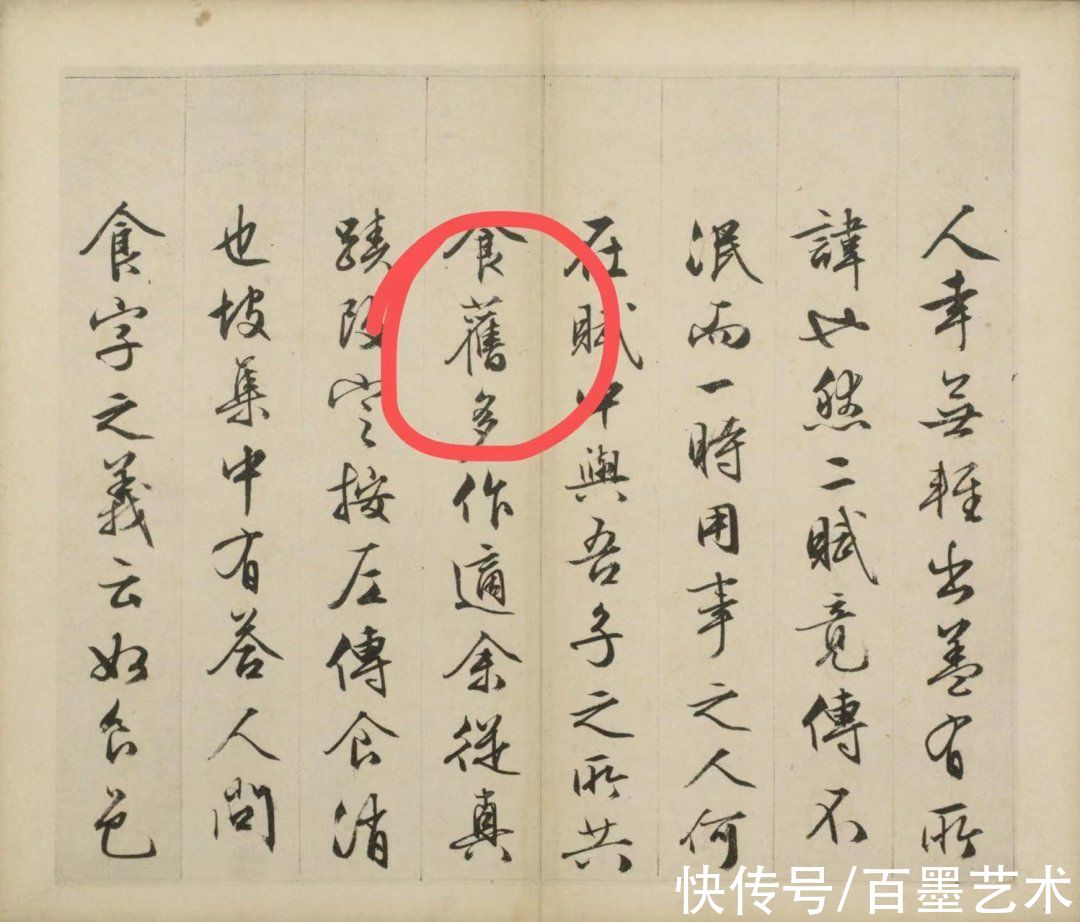 人幸無輕出蓋有所
諱也然二賦竟傳不
泯而一時用事之人何
在賦中與吾子之所共
食舊多作適余從真
蹟改定按左傳食消
也坡集中有答人問
食字之義云如食邑
快传号/百墨艺术